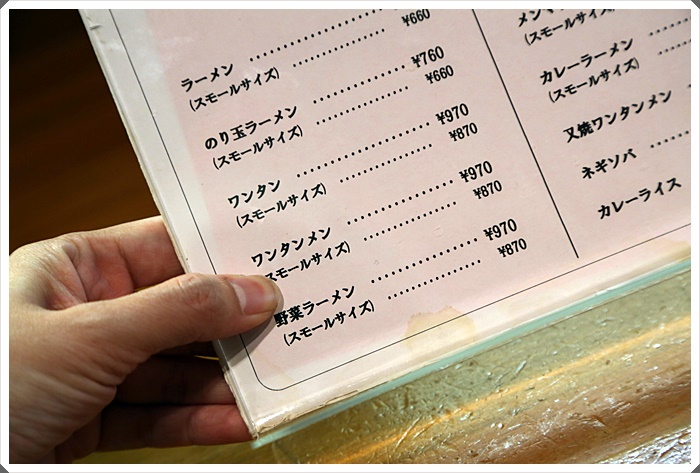 ラーメン
(スモールサイズ) ¥660
のり玉ラーメン ¥760
(スモールサイズ) ¥660
ワンタン ¥970
(スモールサイズ) ¥870
ワンタンメン ¥970
スモールサイズ) ¥870
野菜ラーメン ¥970
(スモールサイズ) ¥870
(スモールサイズ)
カレーラーメン
(スモールサイズ)
叉焼ワンタンメン
ネギソバ
カレーライス